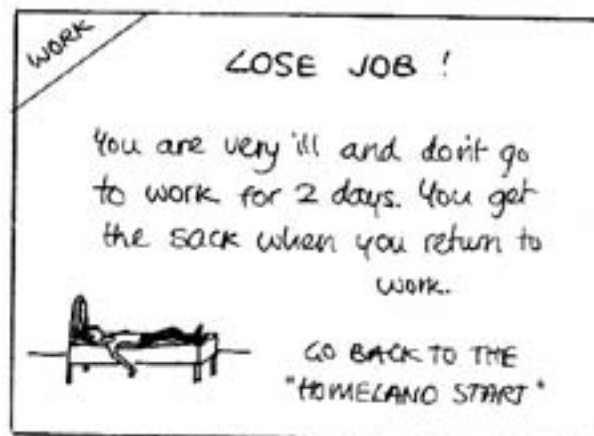 WORK
LOSE JOB !
You are very ill and don't go
to work for 2 days. You get
the sack when you return to
work.
GO BACK TO THE
"HOMELAND START"